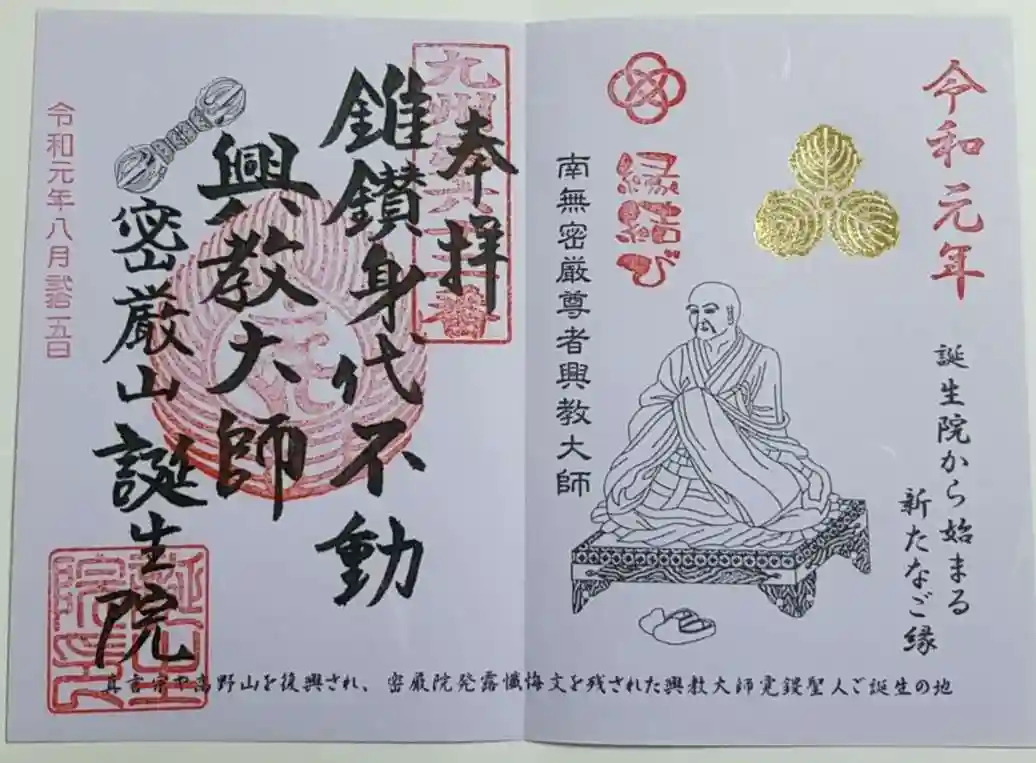 令和元年
誕生院から始まる
新たなご縁
縁結び
南無密厳尊者興教大師
奉拝
錐鑚身代不動
興教大師
密厳山誕生院
令和元年八月弐拾五日
真言宗や高野山を復興され、密厳院発露懺悔文を残された興教大師覚鑁聖人ご誕生の地